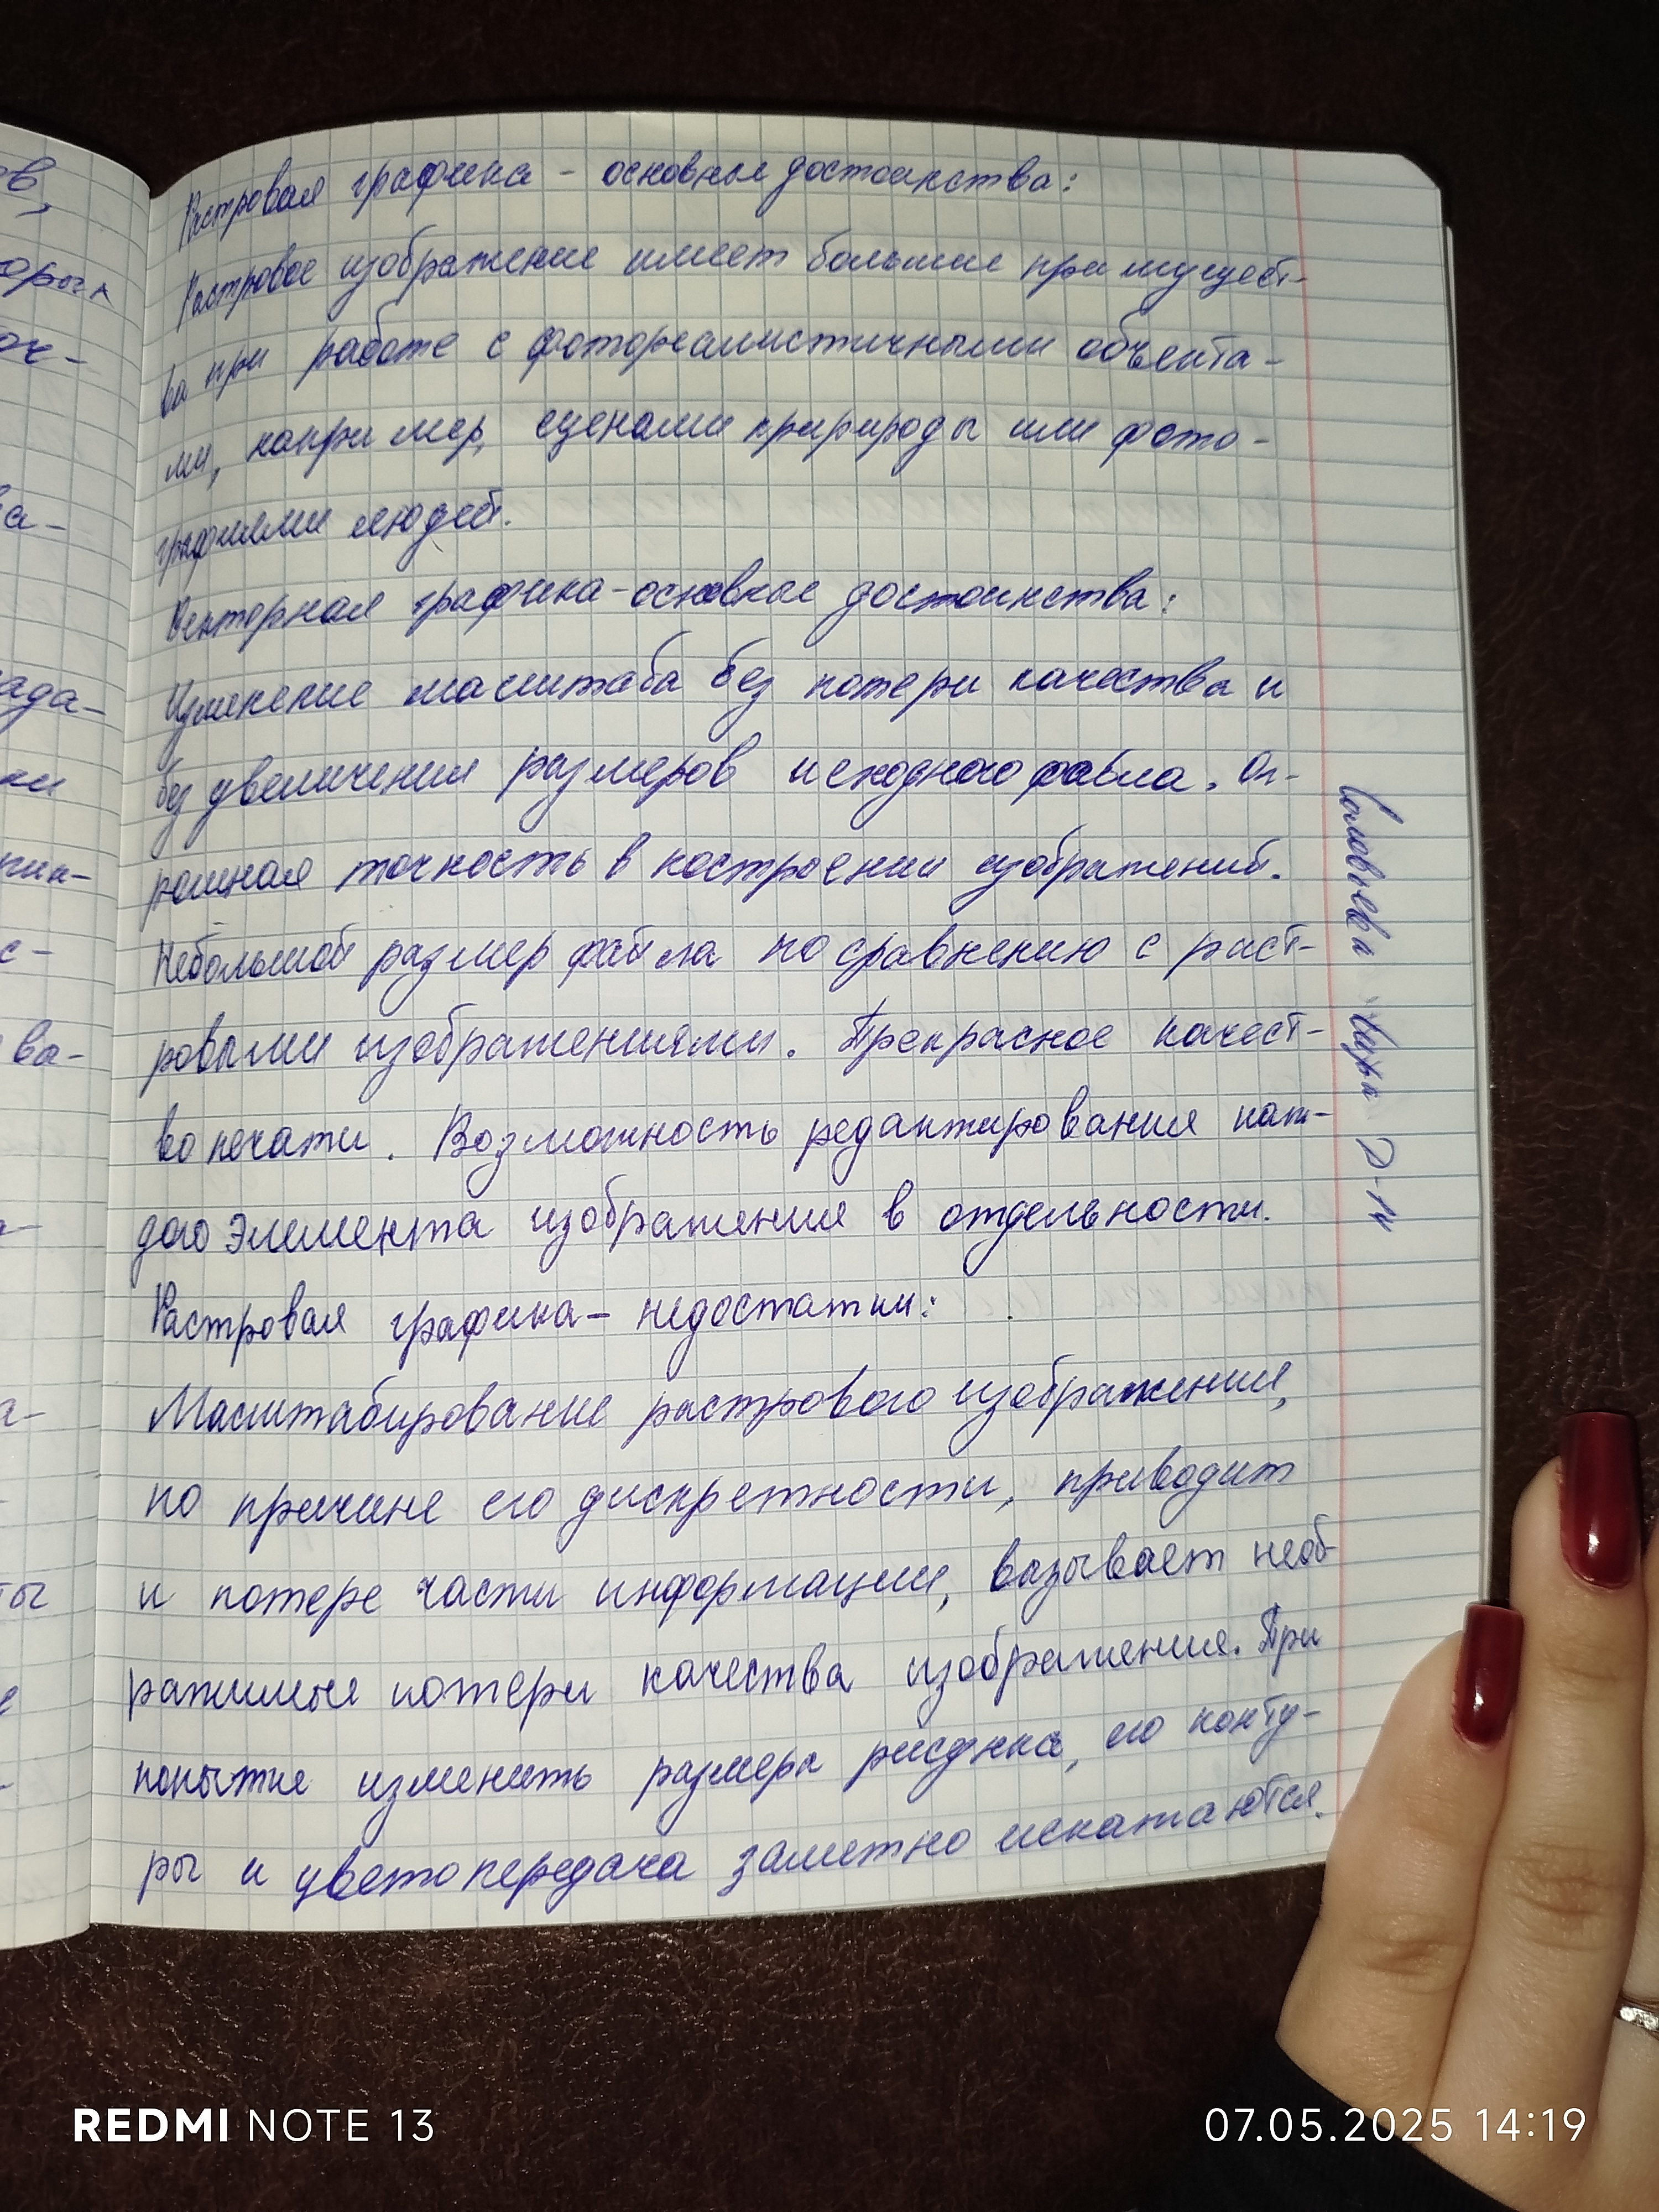 в,
орых
оч-
ва-
ада-
ки
с-
ва-
а-
ты
Растровая графика - основные достоинства:
Растровое изображение имеет большие приимущест-
ва при работе с фотореалистичными объекта-
ми, например, сценами пририроды или фото-
графиями людей.
Векторная графика-основные достоинства:
Изменение масштаба без потери качества и
без увеличения размеров исходного файла. Ог-
ромная точность в построении изображений.
Небольшой размер файла по сравнению с раст-
ровыми изображениями. Прекрасное качест-
во печати. Возможность редактирования каж-
дого элемента изображения в отдельности.
Растровая графика - недостатки:
Масштабирование растрового изображения,
по причине его дискретности, приводит
к потере части информации, вызывает необ
ратимые потери качества изображения. При
попытке изменить размеры рисунка, его конту-
ры и цветопередача заметно искажаются.
Соловьева
REDMI NOTE 13
07.05.2025 14:19